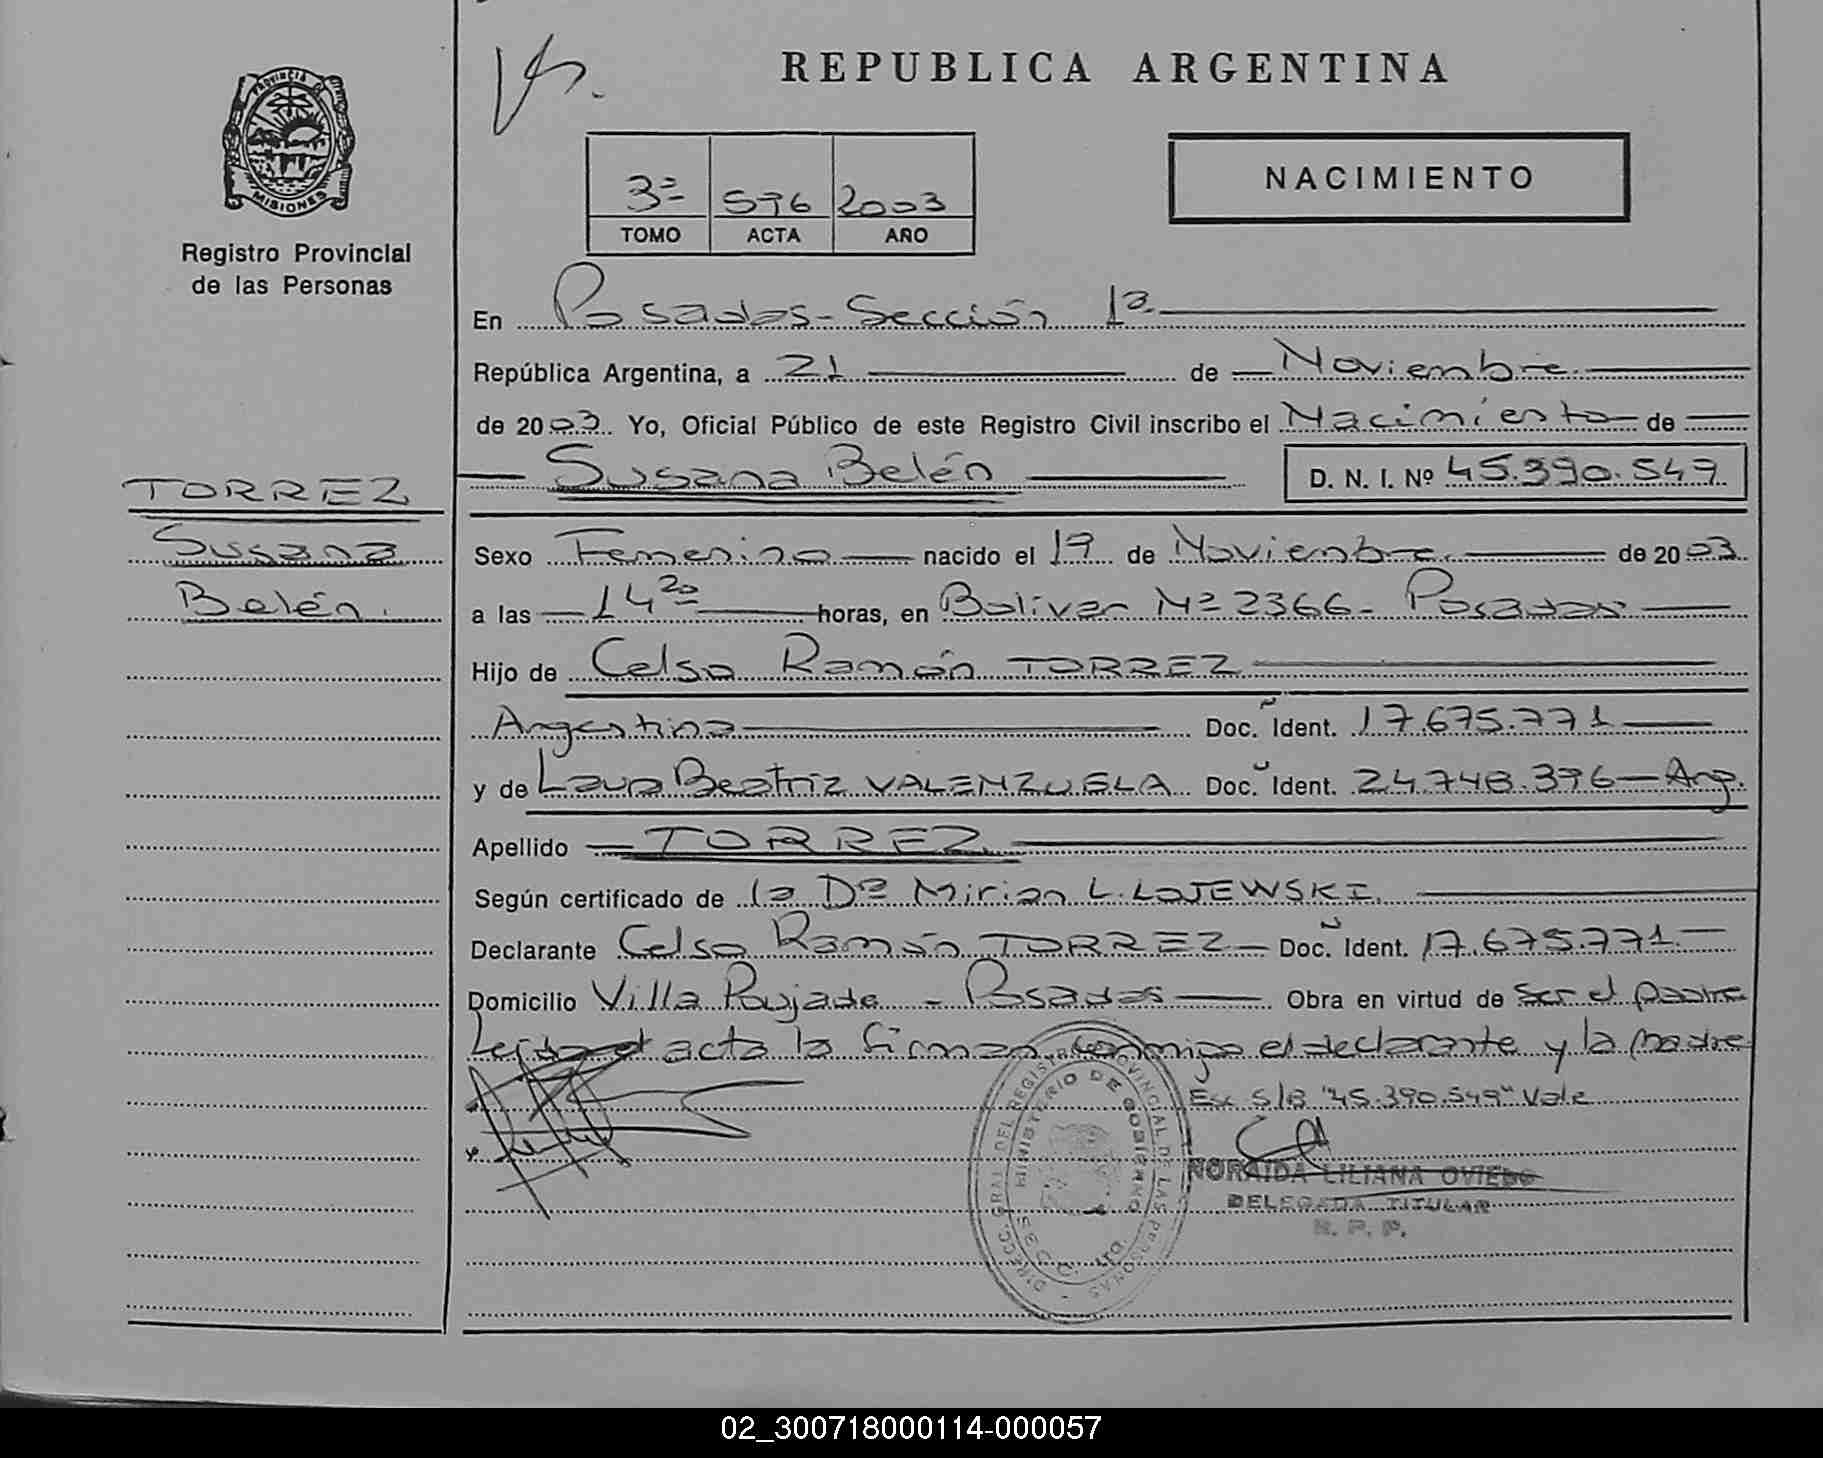 PROVINCIA
MISIONES
Registro Provincial
de las Personas
TORREZ
Susana
Belén.
REPUBLICA ARGENTINA
NACIMIENTO
3º 596 2003
TOMO ACTA AÑO
En Posadas - Sección 1ª
República Argentina, a 21 de Noviembre
de 2003 Yo, Oficial Público de este Registro Civil inscribo el Nacimiento de
Susana Belén D. N. I. Nº 45.390.549
Sexo Femenino nacido el 19 de Noviembre de 2003
a las 14 20 horas, en Bolivar Nº 2366 - Posadas
Hijo de Celso Ramón TORREZ
Argentino Doc. Ident. 17.675.771
y de Laura Beatriz VALENZUELA Doc. Ident. 24.748.396 - Arg.
Apellido TORREZ
Según certificado de la Dª Mirian L. LOJEWSKI.
Declarante Celso Ramón TORREZ - Doc. Ident. 17.675.771.
Domicilio Villa Poujade - Posadas Obra en virtud de Ser el padre
Leída el acta la firman conmigo el declarante y la madre
Esc S/B "45.390.549" Vale
DIRECC. GRAL DEL REGISTRO PROVINCIAL DE LAS PERSONAS
MINISTERIO DE GOBIERNO
NORAIDA LILIANA OVIEDO
DELEGADA TITULAR
R. P. P.
02_300718000114-000057